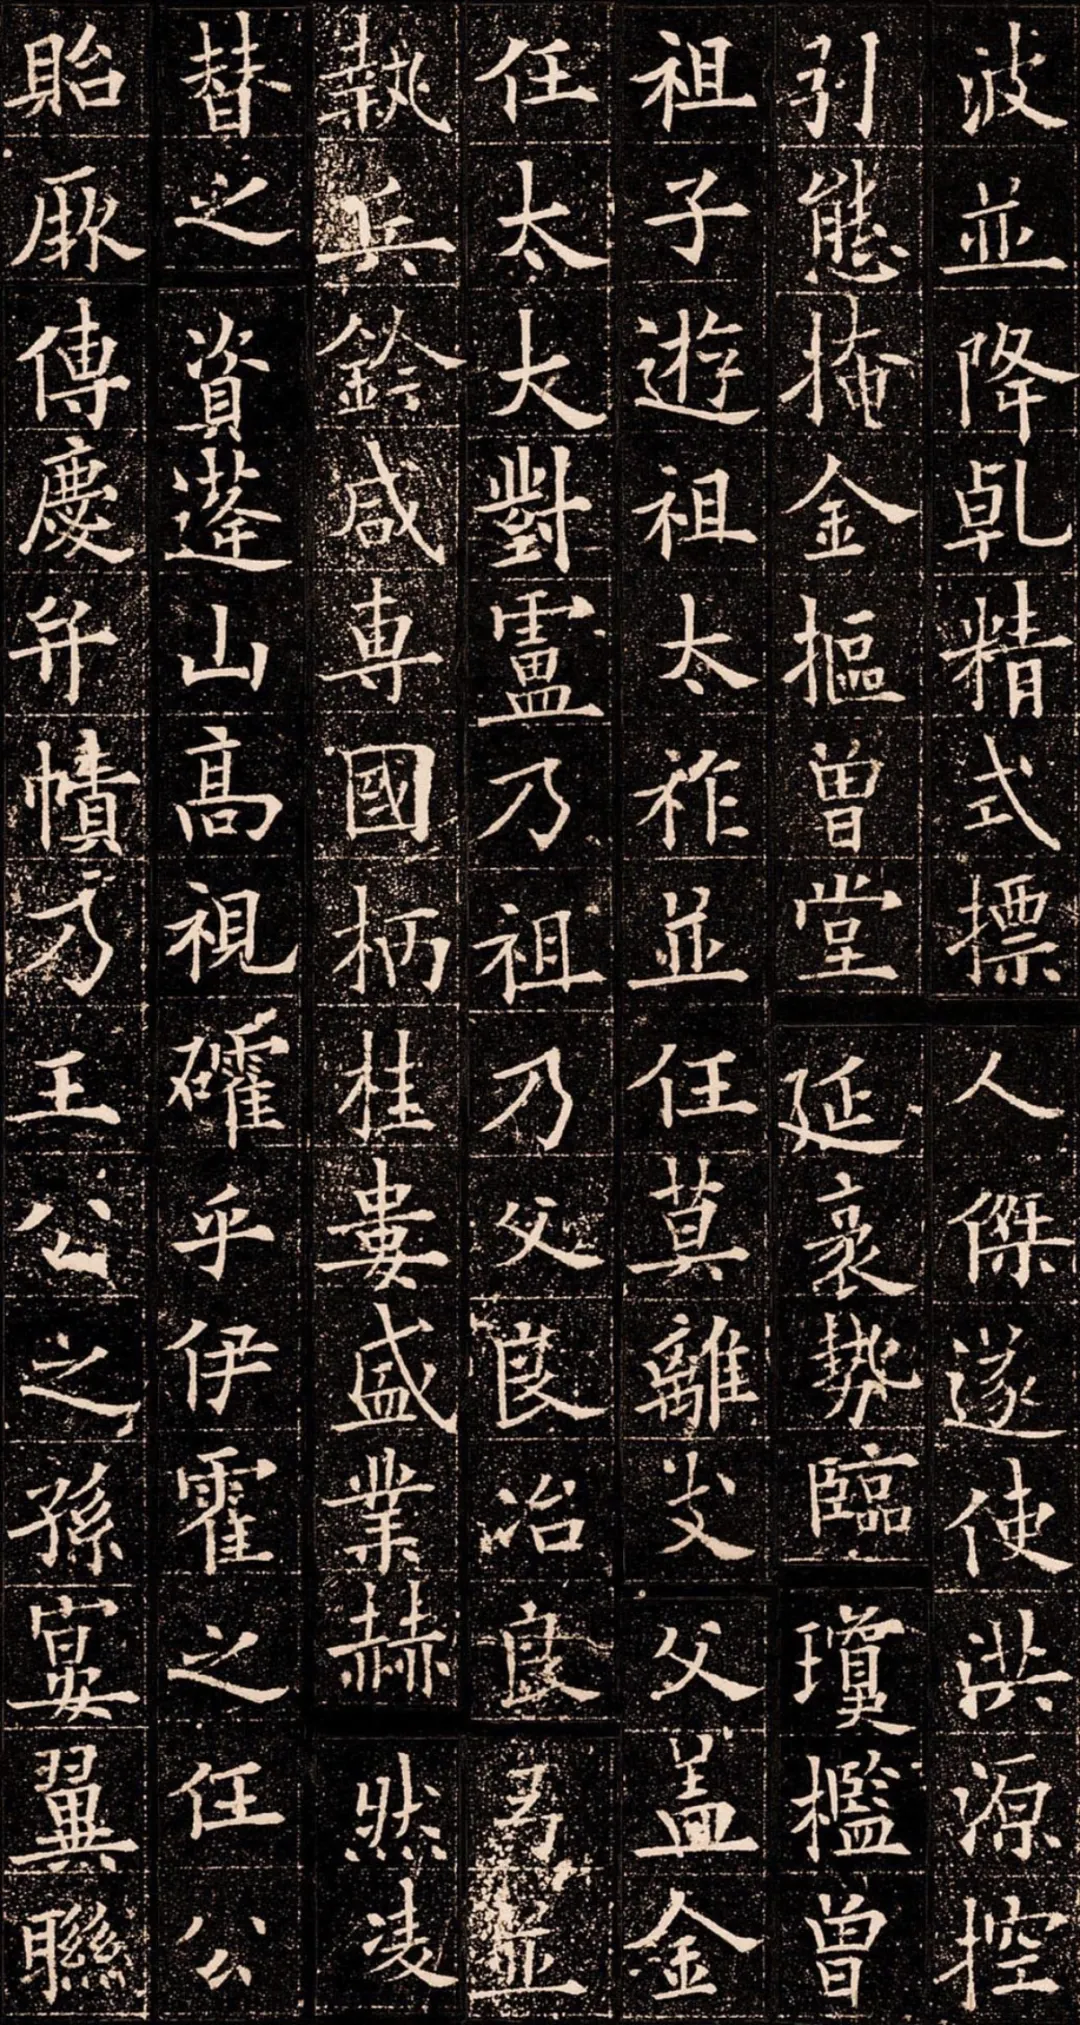 波並降乹精式摽人傑遂使洪源控
引態掩金摳曾堂延袤勢臨瓊檻曾
祖子遊祖太祚並任莫離支父蓋金
任太大對盧乃祖乃父良冶良弓並
執兵鈐咸專國柄桂婁盛業赫然凌
替之資蓬山高視礭乎伊霍之任公
貽厥傳慶弁幘乃王公之孫宴翼聯